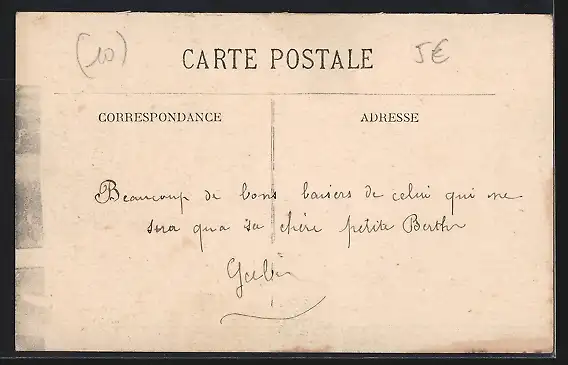 (10)
5€
CARTE POSTALE
CORRESPONDANCE
ADRESSE
Beaucoup de bons baisers de celui qui ne
sera qua sa chère petite Berthe